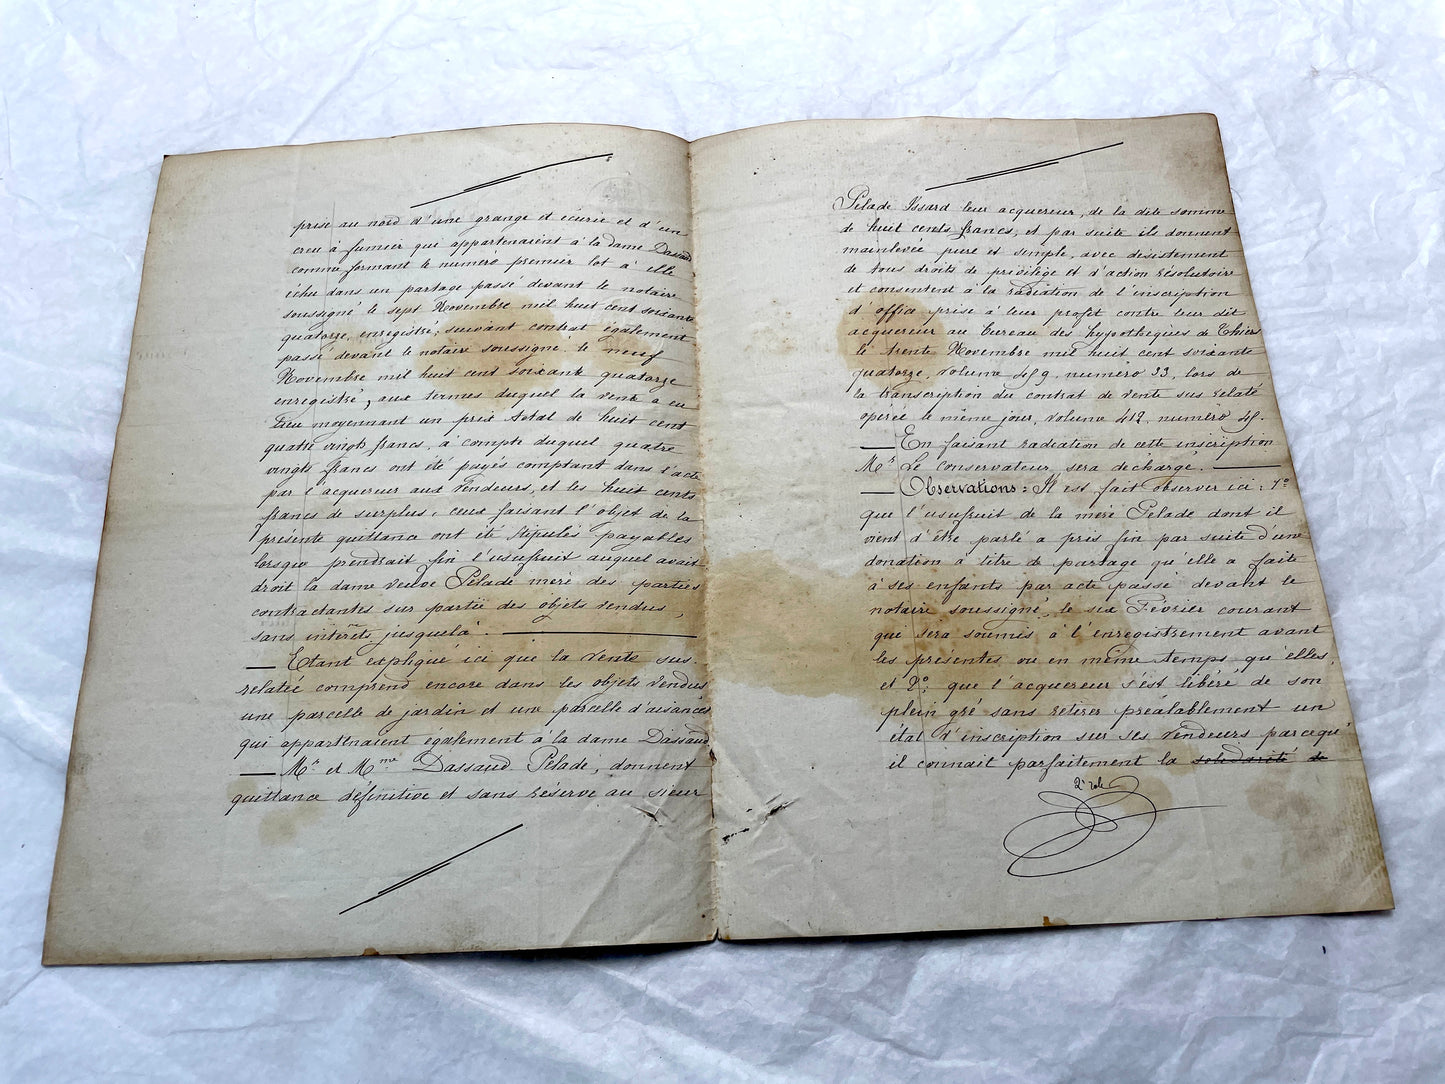 prise au nord d'une grange et écurie et d'un
creu à fumier que appartenaient à la dame Dassaud
comme formant le numéro premier lot à elle
échu dans un partage passé devant le notaire
soussigné le sept Novembre mil huit cent soixante
quatorze, enregistré; suivant contrat également
passé devant le notaire soussigné le neuf
Novembre mil huit cent soixante quatorze
enregistré, aux termes duquel la vente a eu
lieu moyennant un prix total de huit cent
quatre vingts francs, à compte duquel quatre
vingts francs ont été payés comptant dans l'acte
par l'acquereur aux vendeurs, et les huit cents
francs de surplus, ceux faisant l'objet de la
présente quittance ont été stipulés payables
lorsque prendrait fin l'usufruit auquel avait
droit la dame veuve Pélade mère des parties
contractantes sur partie des objets vendus,
sans intérêts jusquelà.
— Etant expliqué ici que la vente sus-
relatée comprend encore dans les objets vendus
une parcelle de jardin et une parcelle d'aisances
qui appartenaient également à la dame Dassaud
— Mr et Mme Dassaud Pélade, donnent
quittance définitive et sans réserve au sieur
Pélade Issard leur acquereur, de la dite somme
de huit cents francs; et par suite ils donnent
mainlevée pure et simple, avec désistement
de tous droits de privilège et d'action résolutoire
et consentent à la radiation de l'inscription
d'office prise à leur profit contre leur dit
acquereur au bureau des hypothèques de Thiers
le trente Novembre mil huit cent soixante
quatorze, volume 459, numéro 33, lors de
la transcription du contrat de vente sus relaté
opérée le même jour, volume 412, numéro 45.
— En faisant radiation de cette inscription
Mr Le Conservateur sera déchargé. —
— Observations: Il est fait observer ici: 1°
que l'usufruit de la mère Pélade dont il
vient d'être parlé a pris fin par suite d'une
donation à titre de partage qu'elle a faite
à ses enfants par acte passé devant le
notaire soussigné, le six Février courant
qui sera soumis à l'enregistrement avant
les présentes ou en même temps qu'elles,
et 2°: que l'acquereur s'est libéré de son
plein gré sans retirer préalablement un
état d'inscription sur ses vendeurs parcequ'
il connait parfaitement la solidarité de
2e role